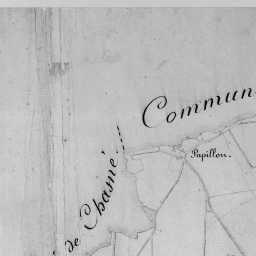 Commun
de Chamé
Papillon.